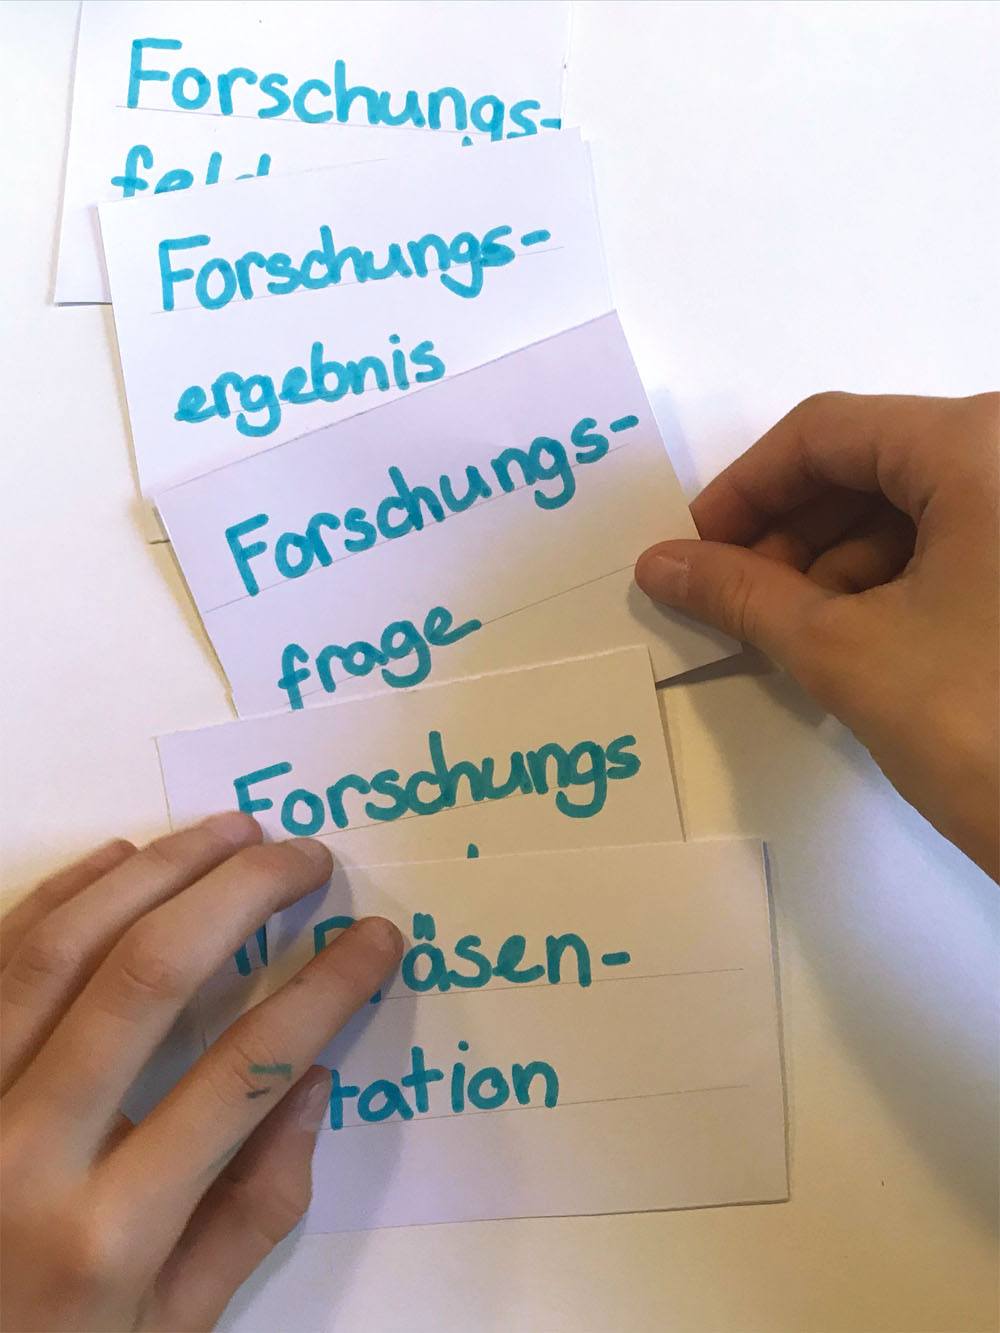 Forschungs-
feld
Forschungs-
ergebnis
Forschungs-
frage
Forschungs
Präsen-
tation